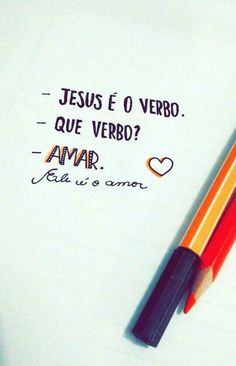 - JESUS É O VERBO.
- QUE VERBO?
- AMAR.
Ele é o amor